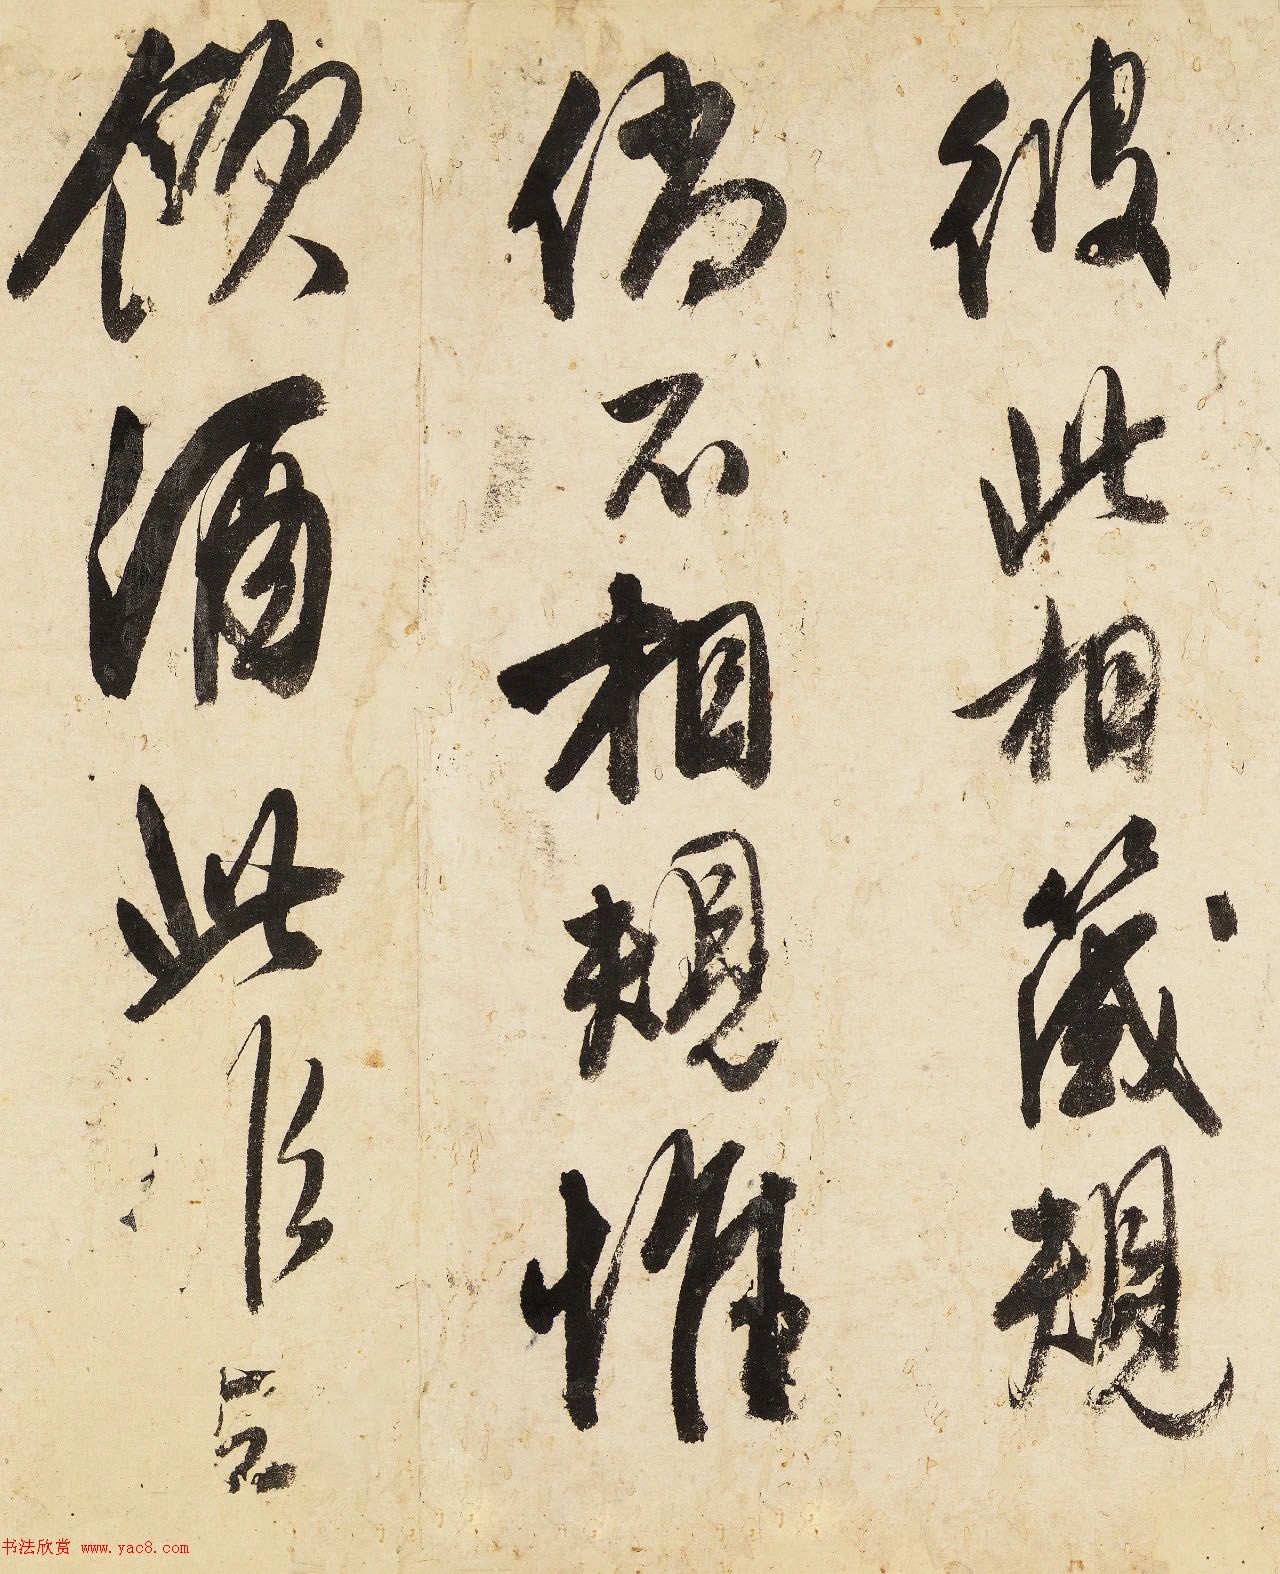 彼此相箴規
倘不相規惟
傾酒此作
书法欣赏 www.yac8.com